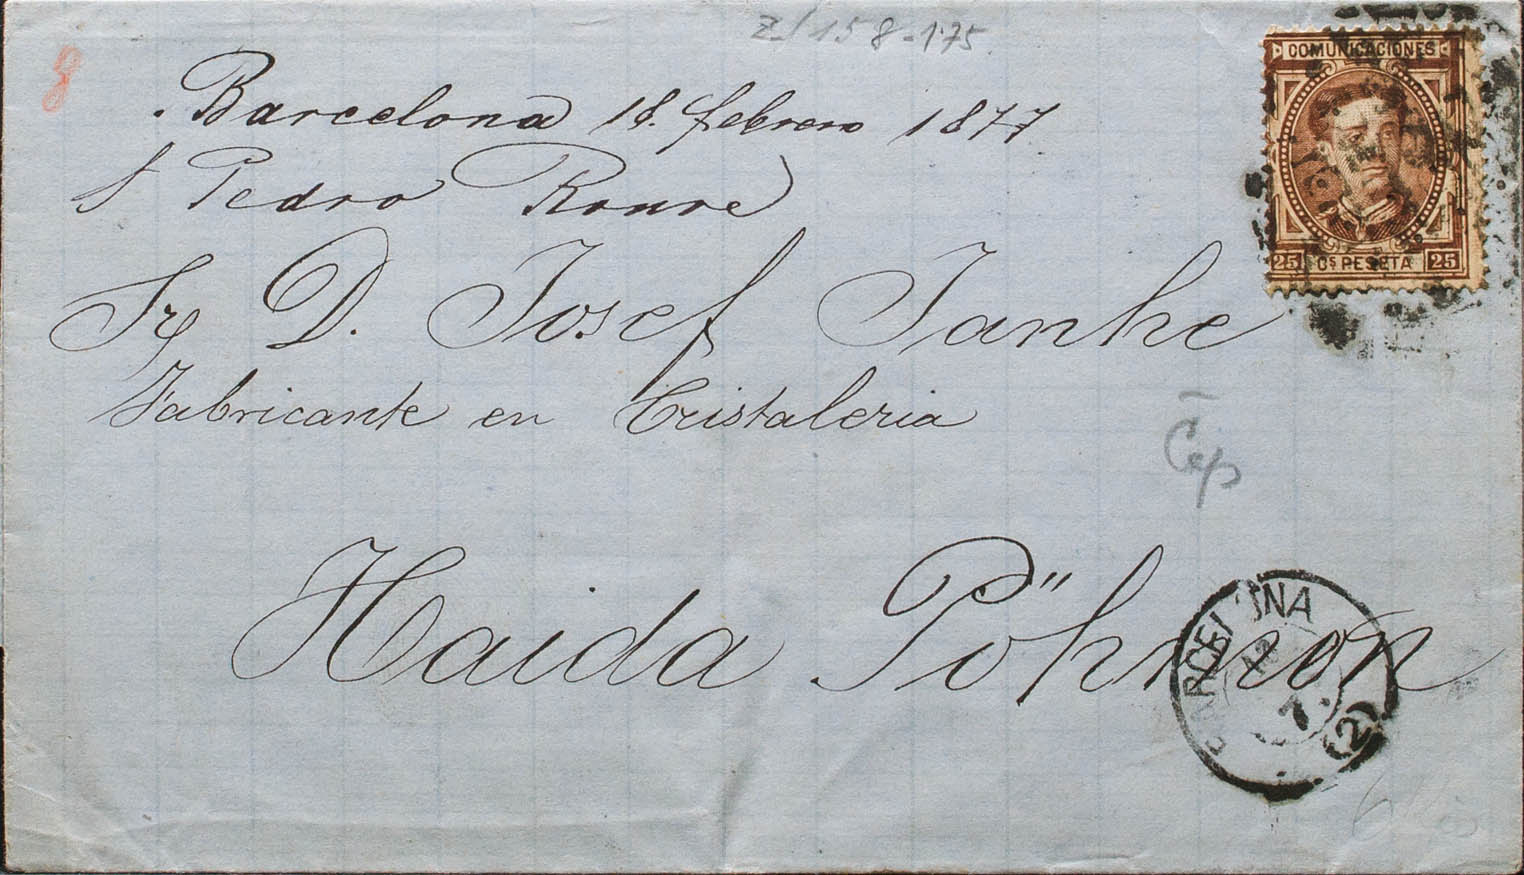 Z/158-175
Barcelona 18. febrero 1877
Pedro Roure
COMUNICACIONES
25 Cs PESETA 25
Sr D. Josef Janke
Fabricante en Cristaleria
Haida Pöhmon
BARCELONA
(2)